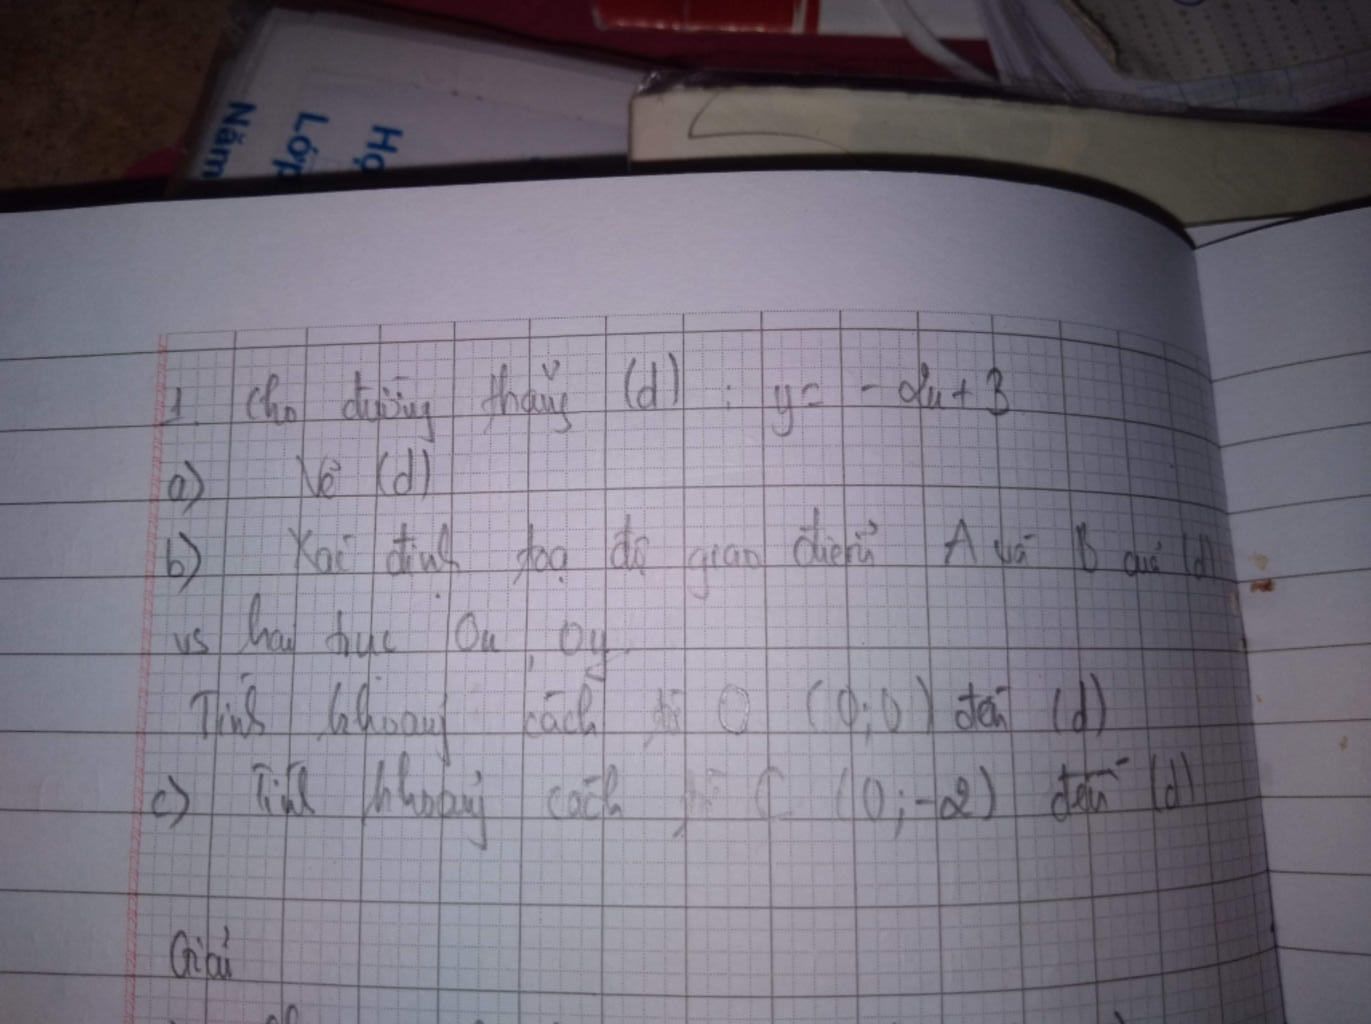 Năm
Lớp
Họ
1. Cho đường thẳng (d) : y = -2x + 3
a) Vẽ (d)
b) Xác định toạ độ giao điểm A và B của (d)
vs hay trục Ox, Oy
Tính khoảng cách từ O (0;0) đến (d)
c) Tính khoảng cách từ C (0;-2) đến (d)
Giải